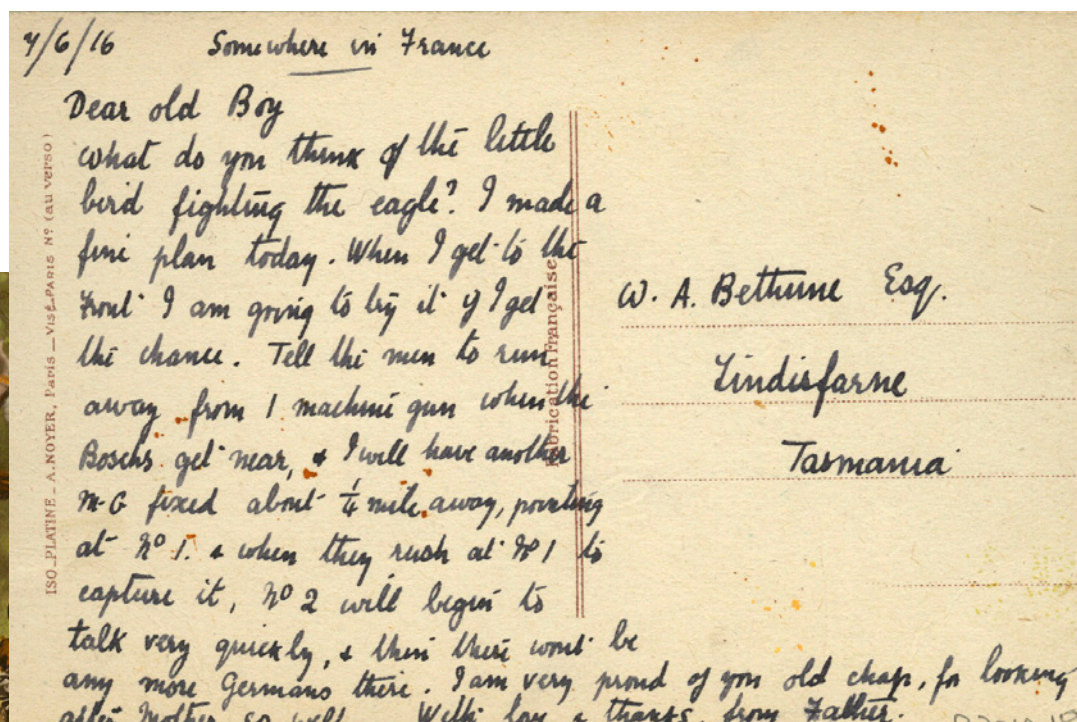 7/6/16 Somewhere in France
Dear old Boy
What do you think of the little
bird fighting the eagle? I made a
fine plan today. When I get to the
Front I am going to try it if I get
the chance. Tell the men to run
away from 1 machine gun when the
Boschs get near, & I will have another
M-G fixed about 1/4 mile away, pointing
at No 1. & when they rush at No 1 to
capture it, No 2 will begin to
talk very quickly, & then there wont be
any more Germans there. I am very proud of you old chap, for looking
after Mother so well. With love & thanks, from Father.
W. A. Bethune Esq.
Lindisfarne
Tasmania
ISO_PLATINE_ A. NOYER, Paris _ VISÉ_PARIS No (au verso)
Fabrication Française